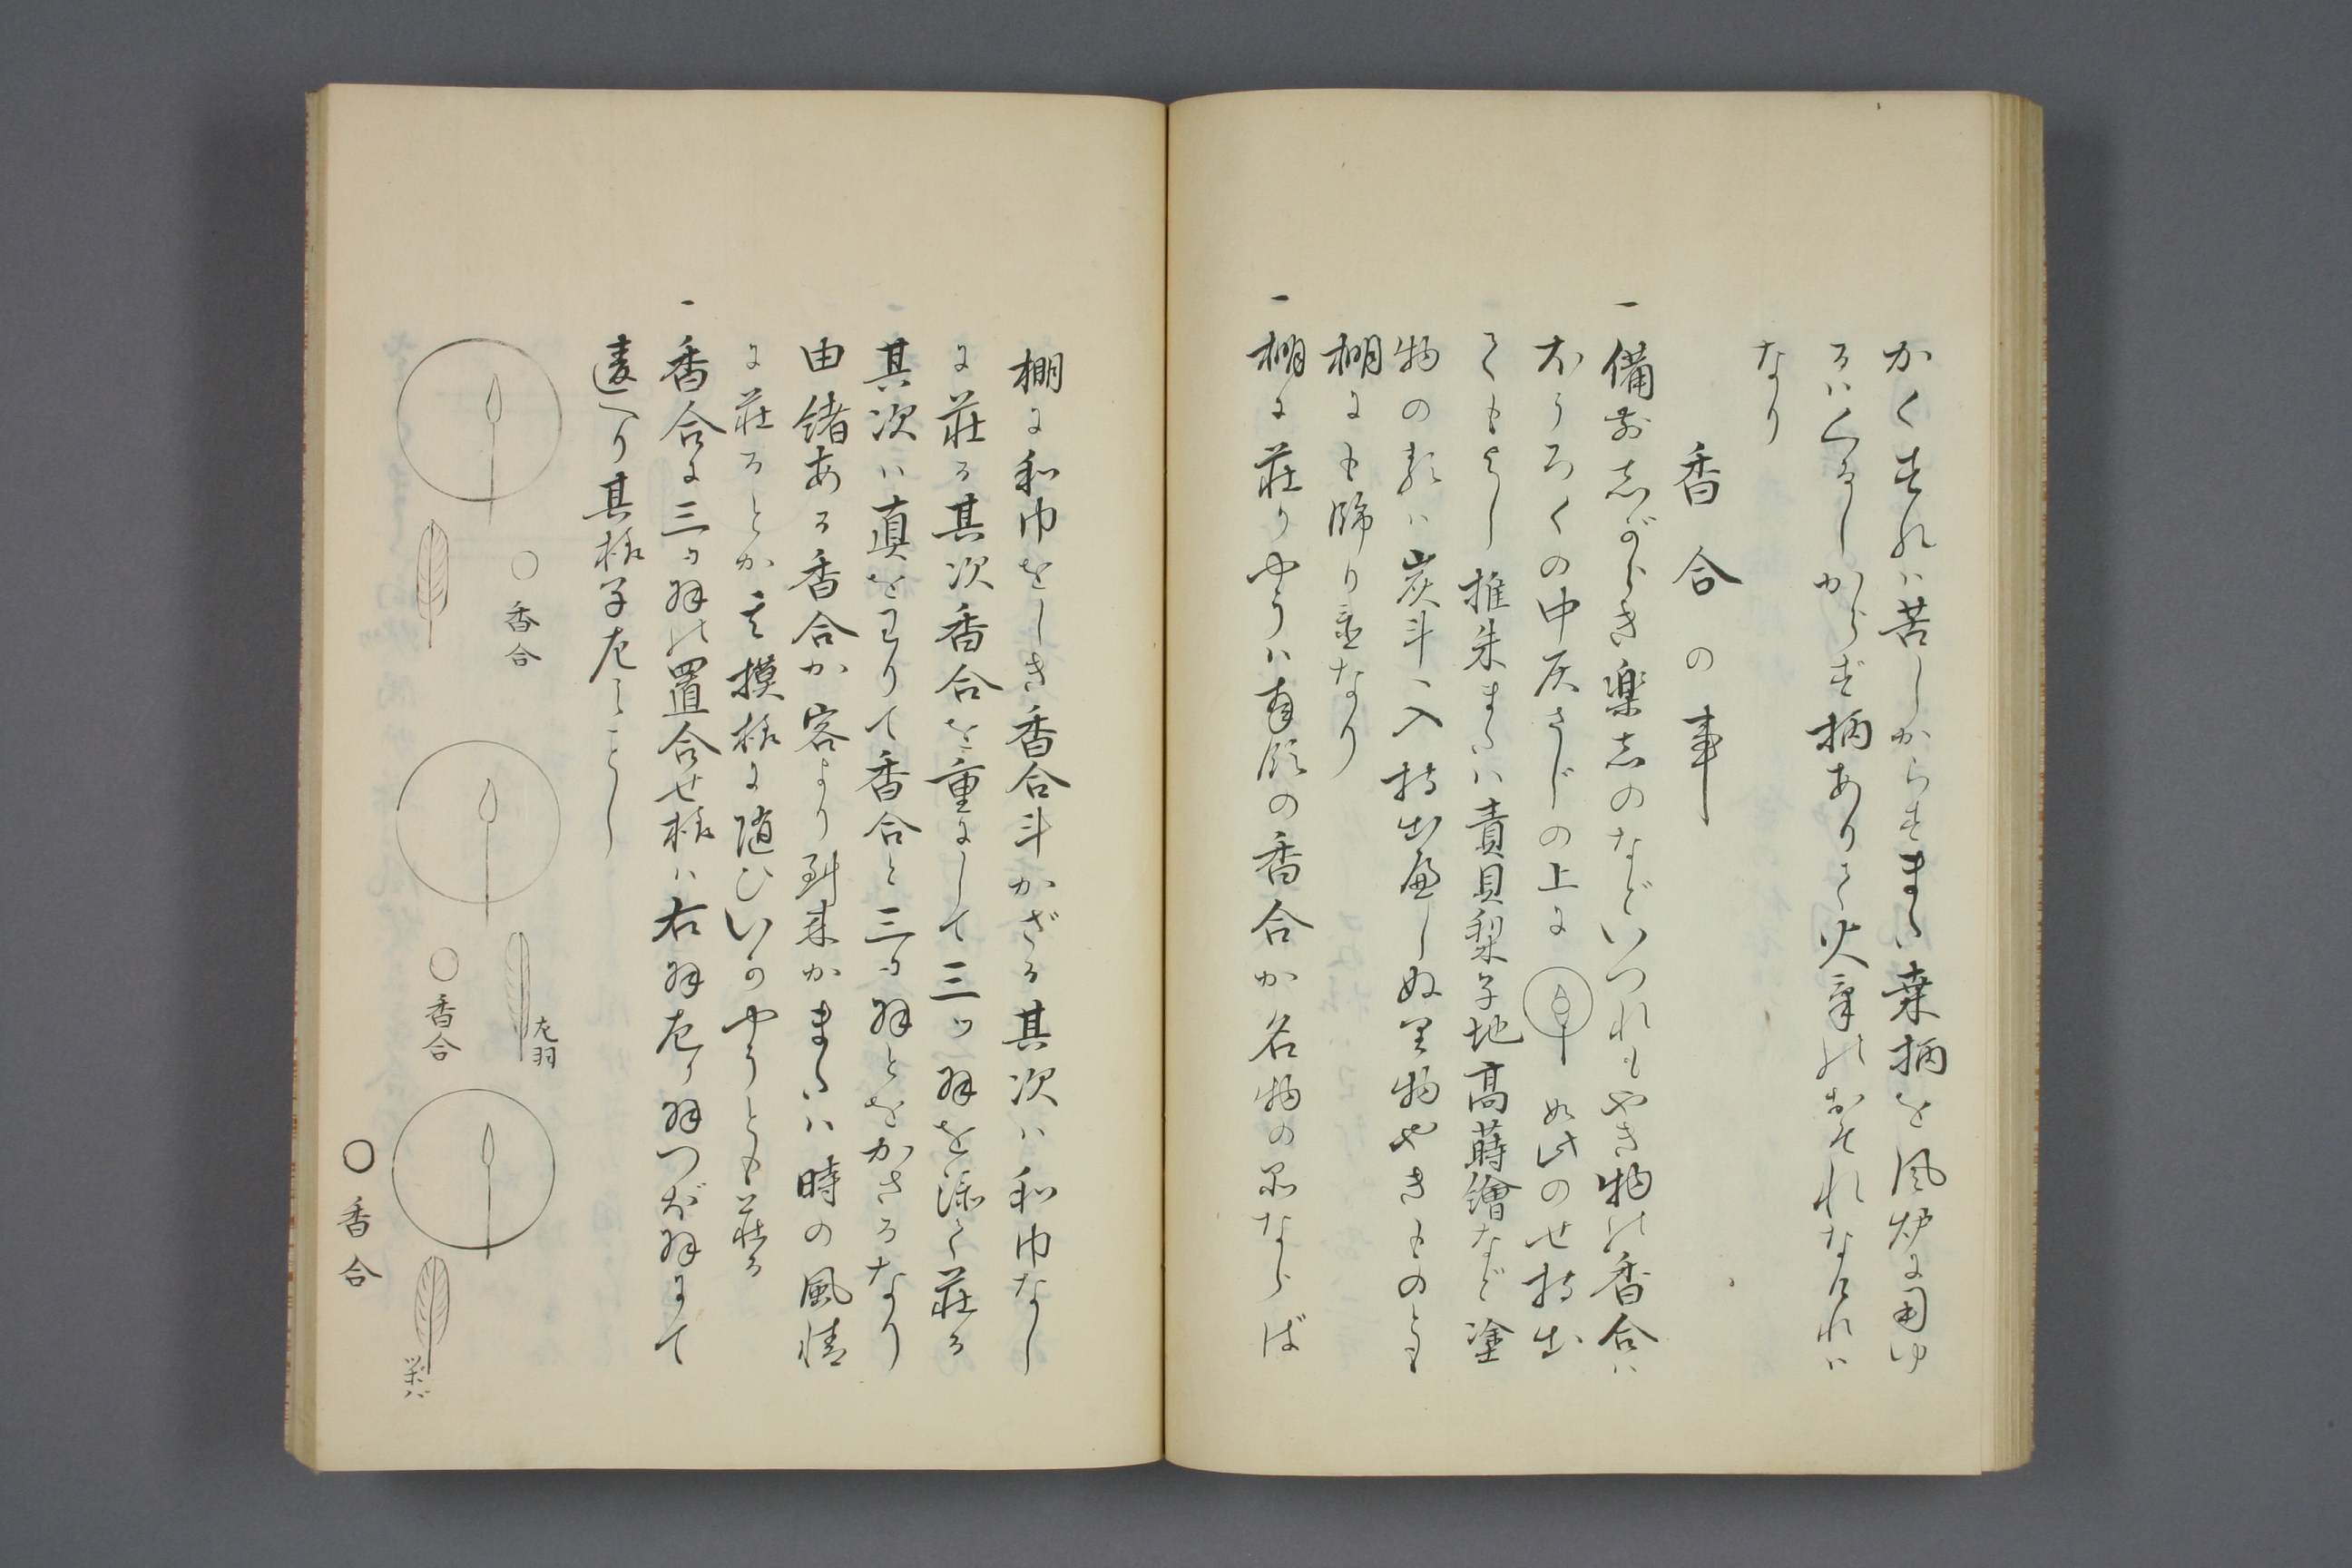 かくすれハ苦しからすまた桑柄を風炉に用ゆ
るハくるしからず柄ありて火気のおそれなけれハ
なり
香合の事
一 備前志がらき楽志のなどいつれもやき物の香合ハ
ほうろくの中灰さじの上に 如此のせ持出
てもよし推朱または青貝梨子地高蒔繪など塗
物の類ハ炭斗へ入持出べしぬり物やきものとも
棚にも飾り置なり
一 棚に荘りやうハ拝領の香合か名物の品ならば
棚に和巾をしき香合斗かざる其次ハ和巾なし
に荘る其次香合を重にして三ツ羽を添て荘る
其次ハ真をわりて香合と三ツ羽とをかさるなり
由緒ある香合か客より到来かまたハ時の風情
に荘るとか其摸様に随ひいかやうとも荘る
一 香合に三ツ羽の置合せ様ハ右羽左り羽つぼ羽にて
違へり其様子左のことし
香合
香合
左羽
香合